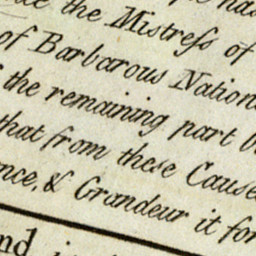 the Mistreſs of
of Barbarous Nation
the remaining part
that from these Cause
nce, & Grandeur it for
nd